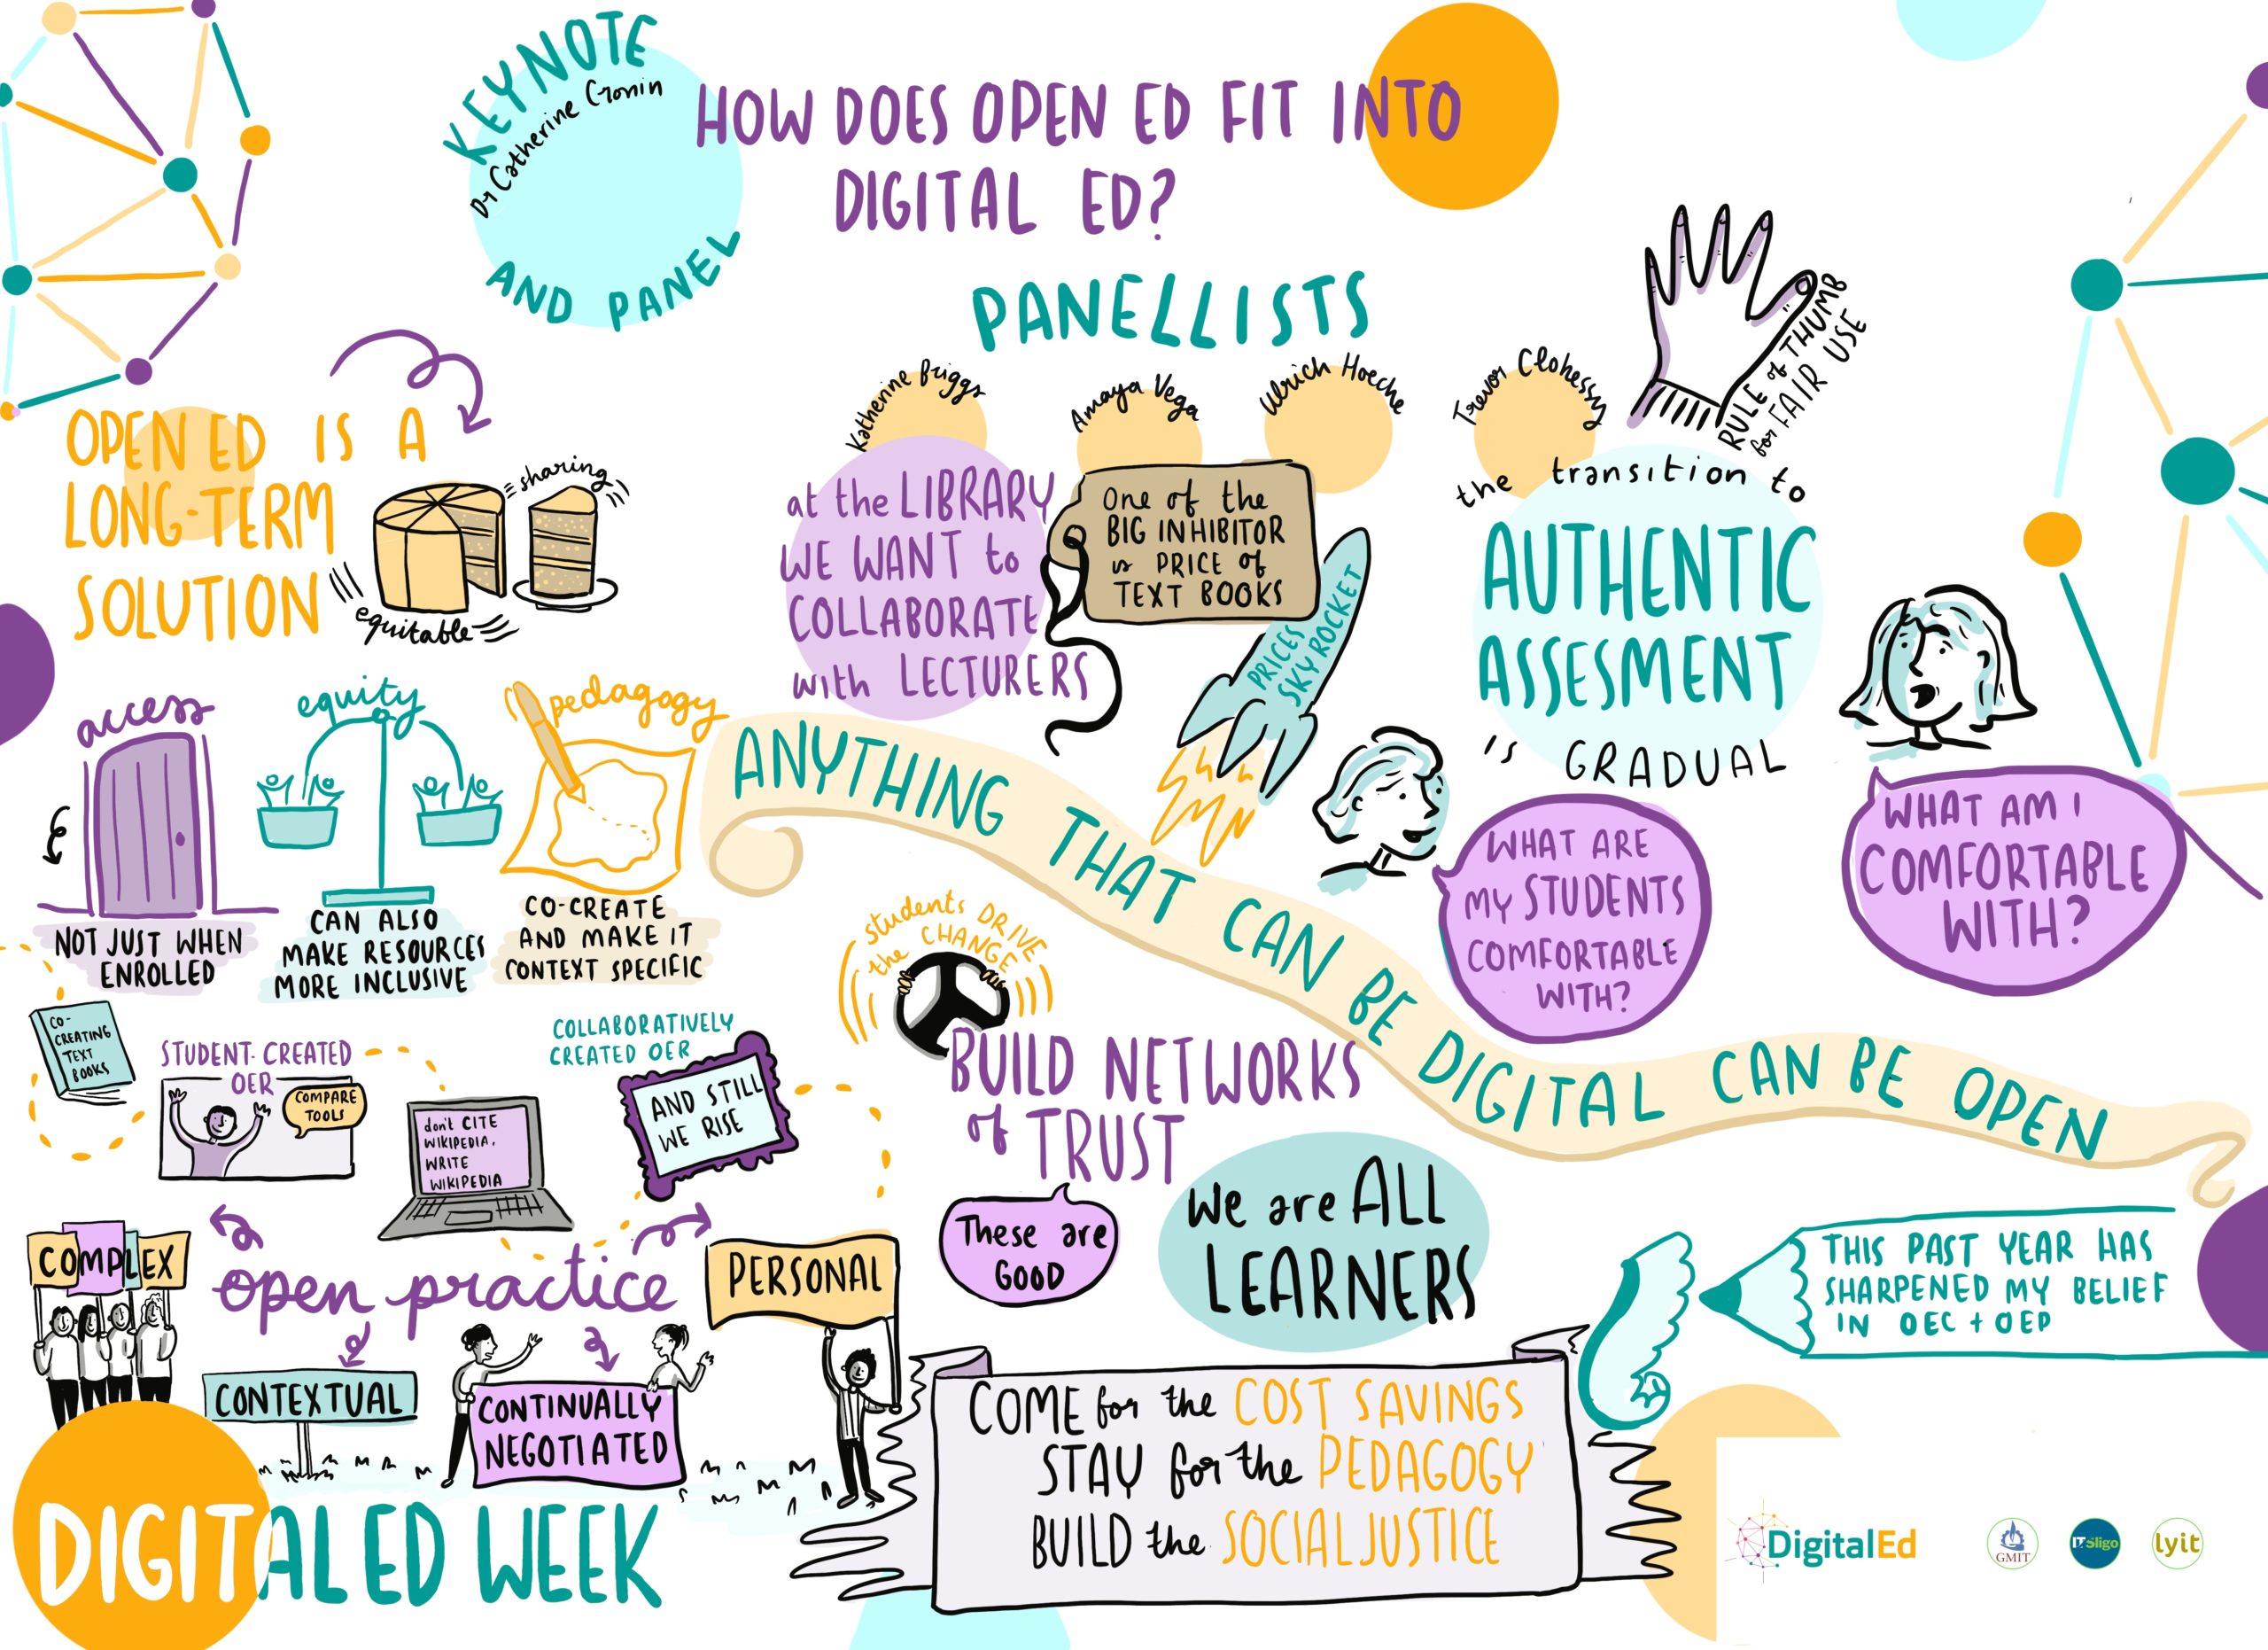 KEYNOTE
Dr Catherine Cronin
AND PANEL
HOW DOES OPEN ED FIT INTO
DIGITAL ED?
PANELLISTS
Katherine Briggs
Amaya Vega
Ulrich Hoeche
Trevor Clohessy
RULE of THUMB
for FAIR USE
OPEN ED IS A
LONG-TERM
SOLUTION
sharing
equitable
at the LIBRARY
WE WANT to
COLLABORATE
with LECTURERS
One of the
BIG INHIBITOR
is PRICE of
TEXT BOOKS
PRICES
SKY ROCKET
the transition to
AUTHENTIC
ASSESMENT
is GRADUAL
WHAT ARE
MY STUDENTS
COMFORTABLE
WITH?
WHAT AM I
COMFORTABLE
WITH?
access
NOT JUST WHEN
ENROLLED
equity
CAN ALSO
MAKE RESOURCES
MORE INCLUSIVE
pedagogy
CO-CREATE
AND MAKE IT
CONTEXT SPECIFIC
ANYTHING THAT CAN BE DIGITAL CAN BE OPEN
students DRIVE
the CHANGE
BUILD NETWORKS
of TRUST
CO-
CREATING
TEXT
BOOKS
STUDENT-CREATED
OER
COMPARE
TOOLS
don't CITE
WIKIPEDIA,
WRITE
WIKIPEDIA
COLLABORATIVELY
CREATED OER
AND STILL
WE RISE
These are
GOOD
We are ALL
LEARNERS
THIS PAST YEAR HAS
SHARPENED MY BELIEF
IN OEC + OEP
COMPLEX
open practice
PERSONAL
CONTEXTUAL
CONTINUALLY
NEGOTIATED
COME for the COST SAVINGS
STAY for the PEDAGOGY
BUILD the SOCIAL JUSTICE
DIGITAL ED WEEK
DigitalEd
GMIT
IT Sligo
lyit